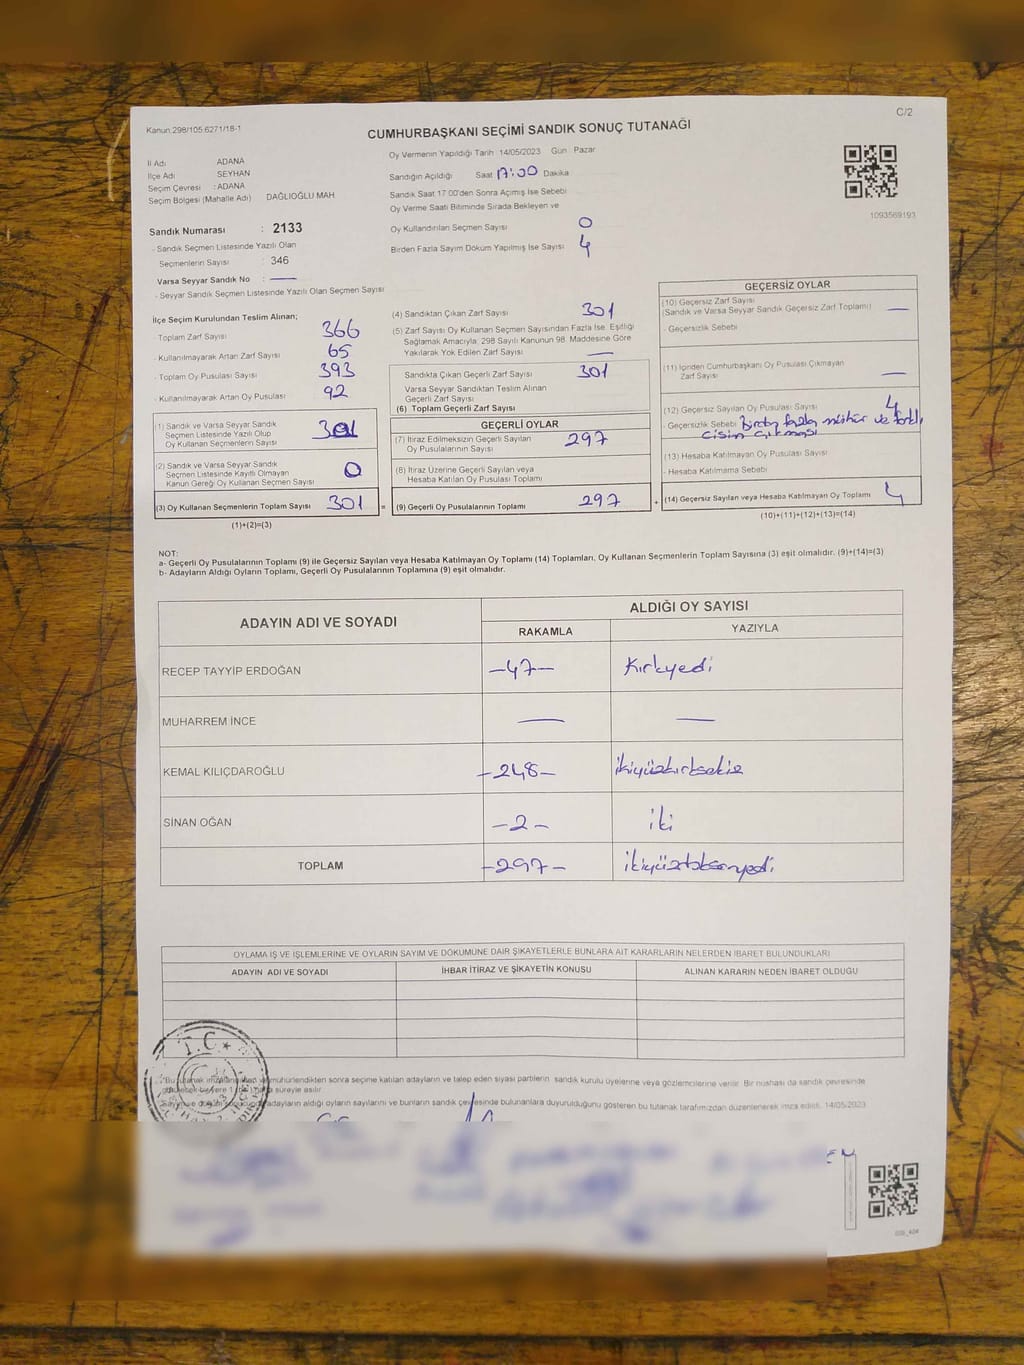 C/2
Kanun 298/105 6271/18-1
CUMHURBAŞKANI SEÇİMİ SANDIK SONUÇ TUTANAĞI
Oy Vermenin Yapıldığı Tarih : 14/05/2023 Gün : Pazar
İl Adı ADANA
İlçe Adı SEYHAN
Seçim Çevresi : ADANA
Seçim Bölgesi (Mahalle Adı) DAĞLIOĞLU MAH
Sandığın Açıldığı Saat 17:00 Dakika
Sandık Saat 17:00'den Sonra Açılmış İse Sebebi
Oy Verme Saati Bitiminde Sırada Bekleyen ve
Oy Kullandırılan Seçmen Sayısı 0
Birden Fazla Sayım Döküm Yapılmış İse Sayısı 4
1093569193
Sandık Numarası : 2133
- Sandık Seçmen Listesinde Yazılı Olan
Seçmenlerin Sayısı : 346
Varsa Seyyar Sandık No : —
- Seyyar Sandık Seçmen Listesinde Yazılı Olan Seçmen Sayısı
İlçe Seçim Kurulundan Teslim Alınan;
- Toplam Zarf Sayısı 366
- Kullanılmayarak Artan Zarf Sayısı 65
- Toplam Oy Pusulası Sayısı 393
- Kullanılmayarak Artan Oy Pusulası 92
(1) Sandık ve Varsa Seyyar Sandık
Seçmen Listesinde Yazılı Olup
Oy Kullanan Seçmenlerin Sayısı 301
(2) Sandık ve Varsa Seyyar Sandık
Seçmen Listesinde Kayıtlı Olmayan
Kanun Gereği Oy Kullanan Seçmen Sayısı 0
(3) Oy Kullanan Seçmenlerin Toplam Sayısı 301 =
(1)+(2)=(3)
(4) Sandıktan Çıkan Zarf Sayısı 301
(5) Zarf Sayısı Oy Kullanan Seçmen Sayısından Fazla İse, Eşitliği
Sağlamak Amacıyla, 298 Sayılı Kanunun 98. Maddesine Göre
Yakılarak Yok Edilen Zarf Sayısı —
Sandıkta Çıkan Geçerli Zarf Sayısı 301
Varsa Seyyar Sandıktan Teslim Alınan
Geçerli Zarf Sayısı
(6) Toplam Geçerli Zarf Sayısı
GEÇERLİ OYLAR
(7) İtiraz Edilmeksizin Geçerli Sayılan
Oy Pusulalarının Sayısı 297
(8) İtiraz Üzerine Geçerli Sayılan veya
Hesaba Katılan Oy Pusulası Toplamı
(9) Geçerli Oy Pusulalarının Toplamı 297 +
GEÇERSİZ OYLAR
(10) Geçersiz Zarf Sayısı
(Sandık ve Varsa Seyyar Sandık Geçersiz Zarf Toplamı) —
- Geçersizlik Sebebi
(11) İçinden Cumhurbaşkanı Oy Pusulası Çıkmayan
Zarf Sayısı —
(12) Geçersiz Sayılan Oy Pusulası Sayısı 4
- Geçersizlik Sebebi Birden fazla mühür ve farklı
cisim çıkması
(13) Hesaba Katılmayan Oy Pusulası Sayısı
- Hesaba Katılmama Sebebi
(14) Geçersiz Sayılan veya Hesaba Katılmayan Oy Toplamı 4
(10)+(11)+(12)+(13)=(14)
NOT:
a- Geçerli Oy Pusulalarının Toplamı (9) ile Geçersiz Sayılan veya Hesaba Katılmayan Oy Toplamı (14) Toplamları, Oy Kullanan Seçmenlerin Toplam Sayısına (3) eşit olmalıdır. (9)+(14)=(3)
b- Adayların Aldığı Oyların Toplamı, Geçerli Oy Pusulalarının Toplamına (9) eşit olmalıdır.
ADAYIN ADI VE SOYADI
ALDIĞI OY SAYISI
RAKAMLA YAZIYLA
RECEP TAYYİP ERDOĞAN —47— Kırkyedi
MUHARREM İNCE — —
KEMAL KILIÇDAROĞLU —248— ikiyüzkırksekiz
SİNAN OĞAN —2— iki
TOPLAM —297— ikiyüzdoksanyedi
OYLAMA İŞ VE İŞLEMLERİNE VE OYLARIN SAYIM VE DÖKÜMÜNE DAİR ŞİKAYETLERLE BUNLARA AİT KARARLARIN NELERDEN İBARET BULUNDUKLARI
ADAYIN ADI VE SOYADI İHBAR İTİRAZ VE ŞİKAYETİN KONUSU ALINAN KARARIN NEDEN İBARET OLDUĞU
T.C.
Bu tutanak imzalanıp mühürlendikten sonra seçime katılan adayların ve talep eden siyasi partilerin sandık kurulu üyelerine veya gözlemcilerine verilir. Bir nüshası da sandık çevresinde
süreyle asılır.
adayların aldığı oyların sayılarını ve bunların sandık çevresinde bulunanlara duyurulduğunu gösteren bu tutanak tarafımızdan düzenlenerek imza edildi. 14/05/2023